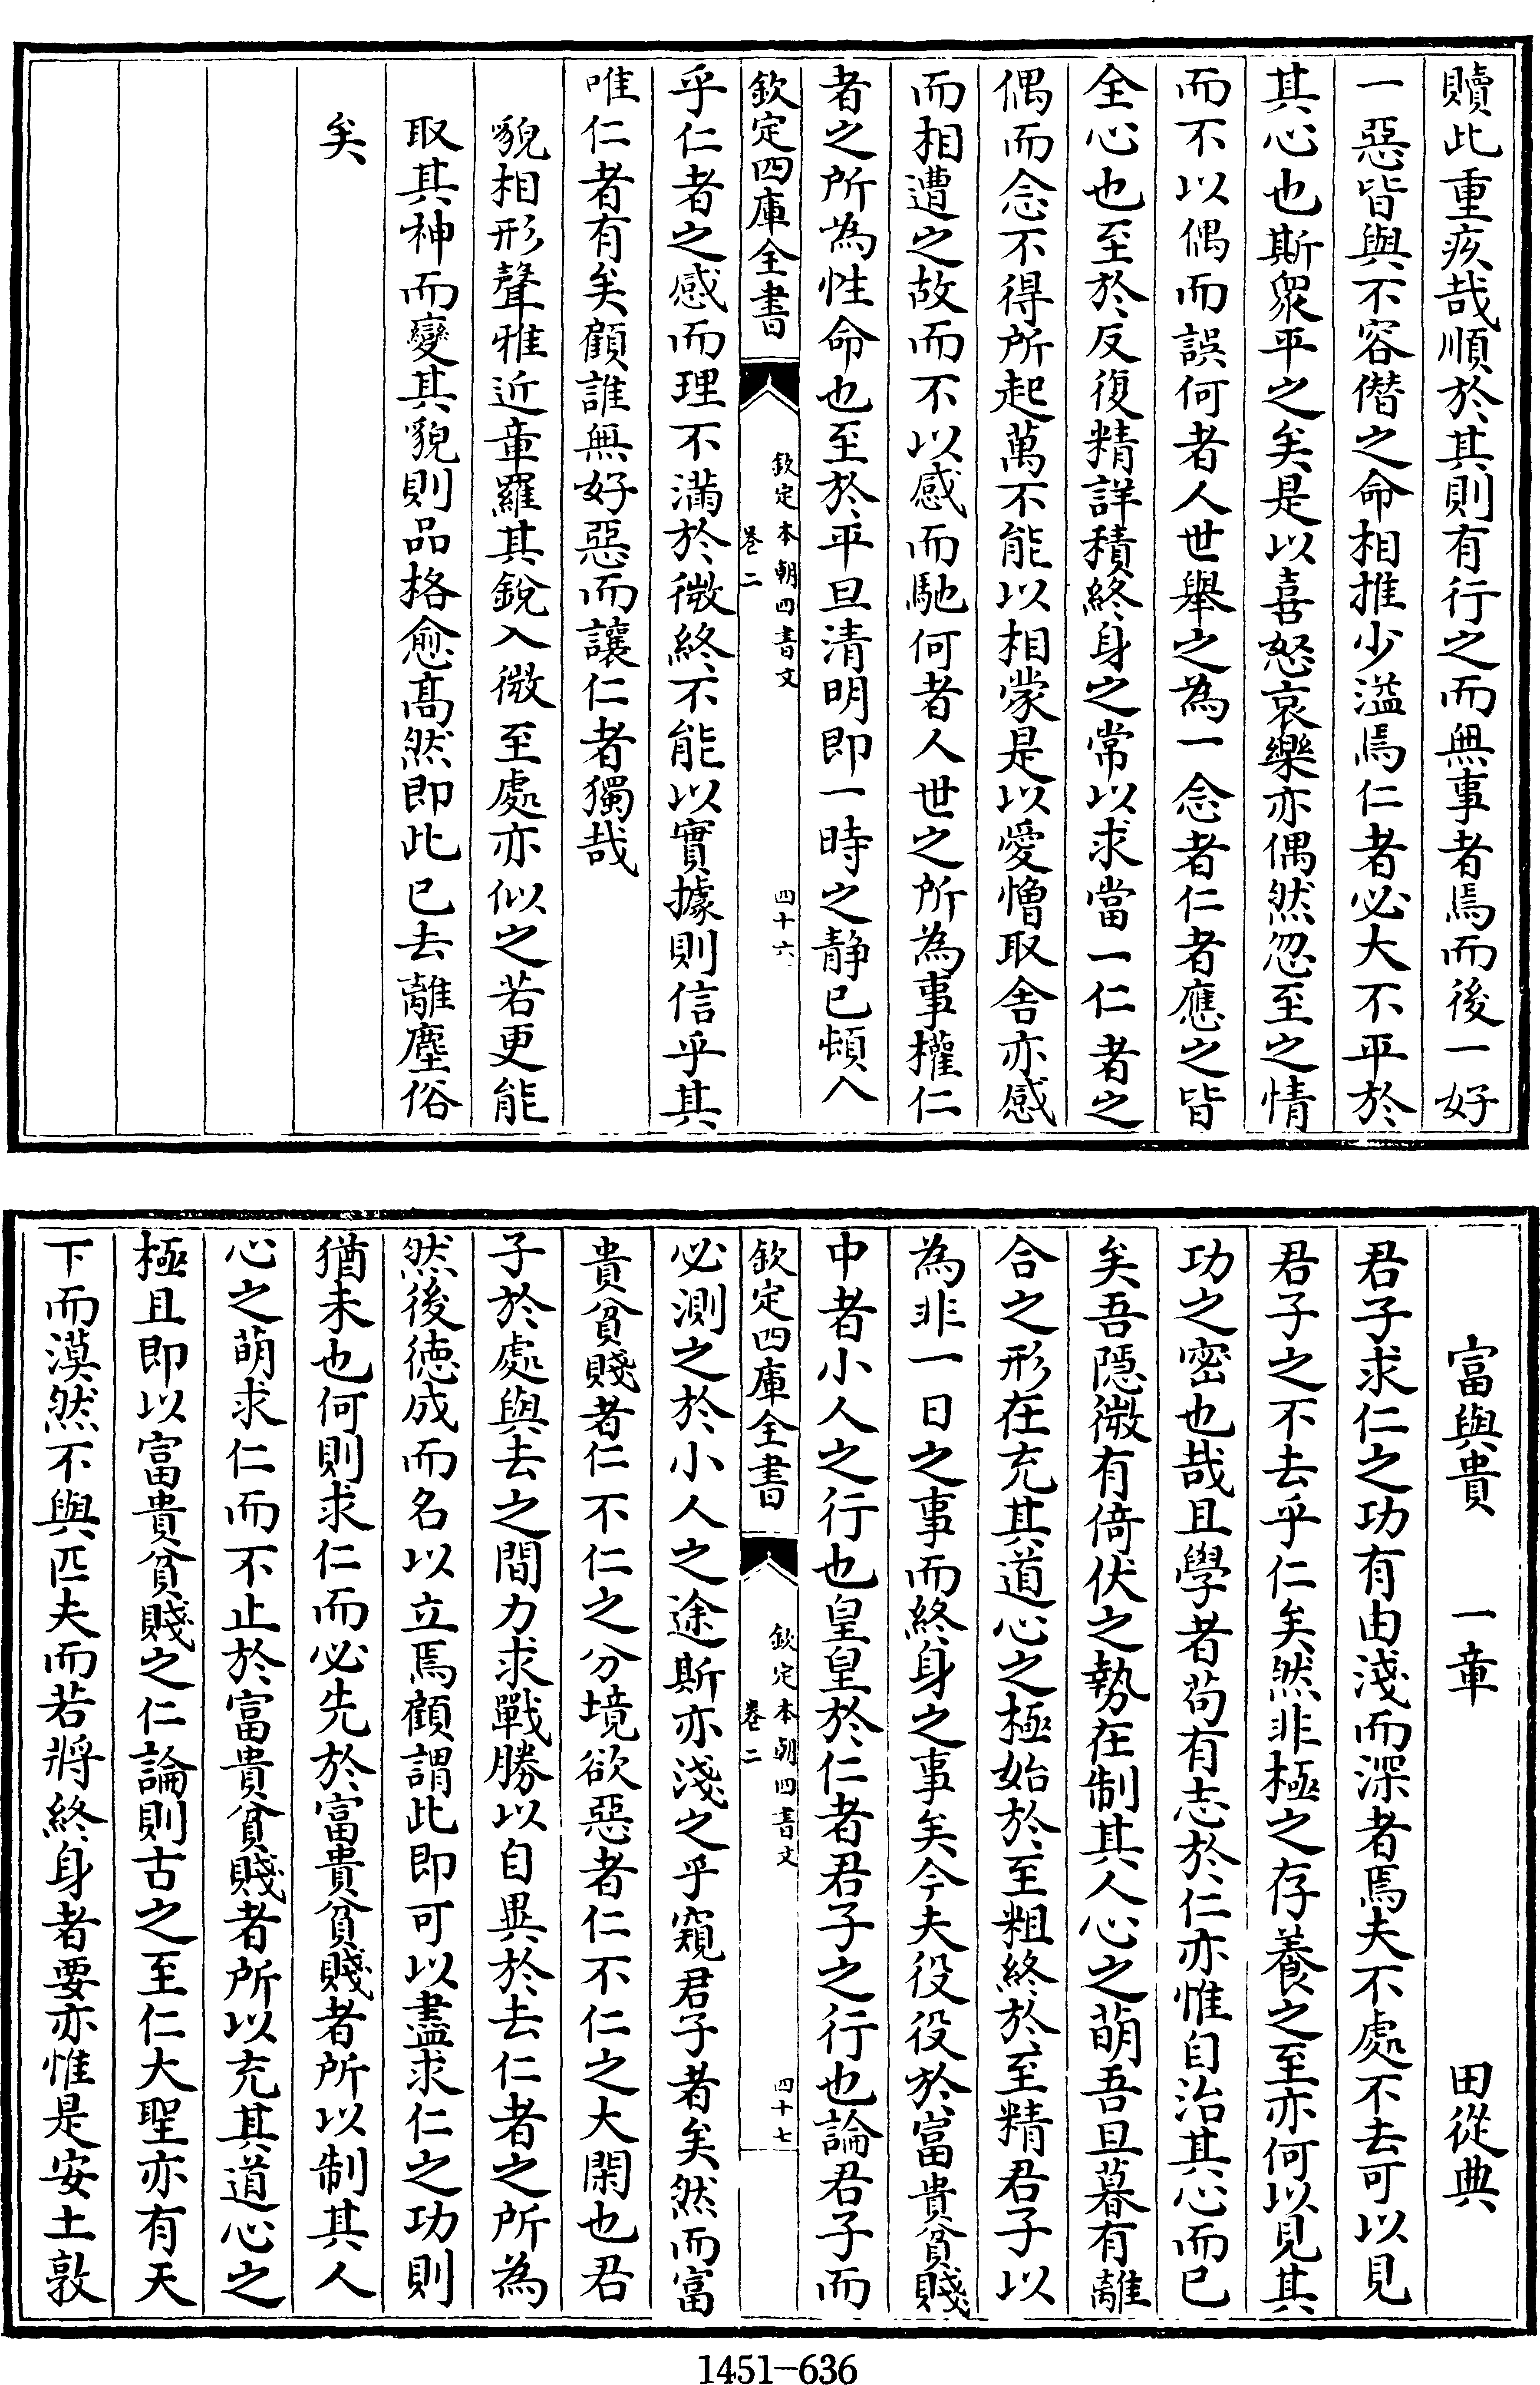 贖此重疚哉順於其則有行之而無事者焉而後一好
一惡皆與不容僭之命相推少溢焉仁者必大不平於
其心也斯衆平之矣是以喜怒哀樂亦偶然忽至之情
而不以偶而誤何者人世舉之為一念者仁者應之皆
全心也至於反復精詳積終身之常以求當一仁者之
偶而念不得所起萬不能以相蒙是以愛憎取舍亦感
而相遭之故而不以感而馳何者人世之所為事權仁
者之所為性命也至於平旦清明即一時之静已頓入
欽定四庫全書
欽定本朝四書文
卷二
四十六
乎仁者之感而理不滿於微終不能以實據則信乎其
唯仁者有矣顧誰無好惡而讓仁者獨哉
貌相形聲雅近章羅其銳入微至處亦似之若更能
取其神而變其貌則品格愈高然即此已去離塵俗
矣
富與貴 一章 田從典
君子求仁之功有由淺而深者焉夫不處不去可以見
君子之不去乎仁矣然非極之存養之至亦何以見其
功之密也哉且學者苟有志於仁亦惟自治其心而已
矣吾隱微有倚伏之勢在制其人心之萌吾旦暮有離
合之形在充其道心之極始於至粗終於至精君子以
為非一日之事而終身之事矣今夫役役於富貴貧賤
中者小人之行也皇皇於仁者君子之行也論君子而
欽定四庫全書
欽定本朝四書文
卷二
四十七
必測之於小人之途斯亦淺之乎窺君子者矣然而富
貴貧賤者仁不仁之分境欲惡者仁不仁之大閑也君
子於處與去之間力求戰勝以自異於去仁者之所為
然後徳成而名以立焉顧謂此即可以盡求仁之功則
猶未也何則求仁而必先於富貴貧賤者所以制其人
心之萌求仁而不止於富貴貧賤者所以充其道心之
極且即以富貴貧賤之仁論則古之至仁大聖亦有天
下而漠然不與匹夫而若將終身者要亦惟是安土敦
1451-636